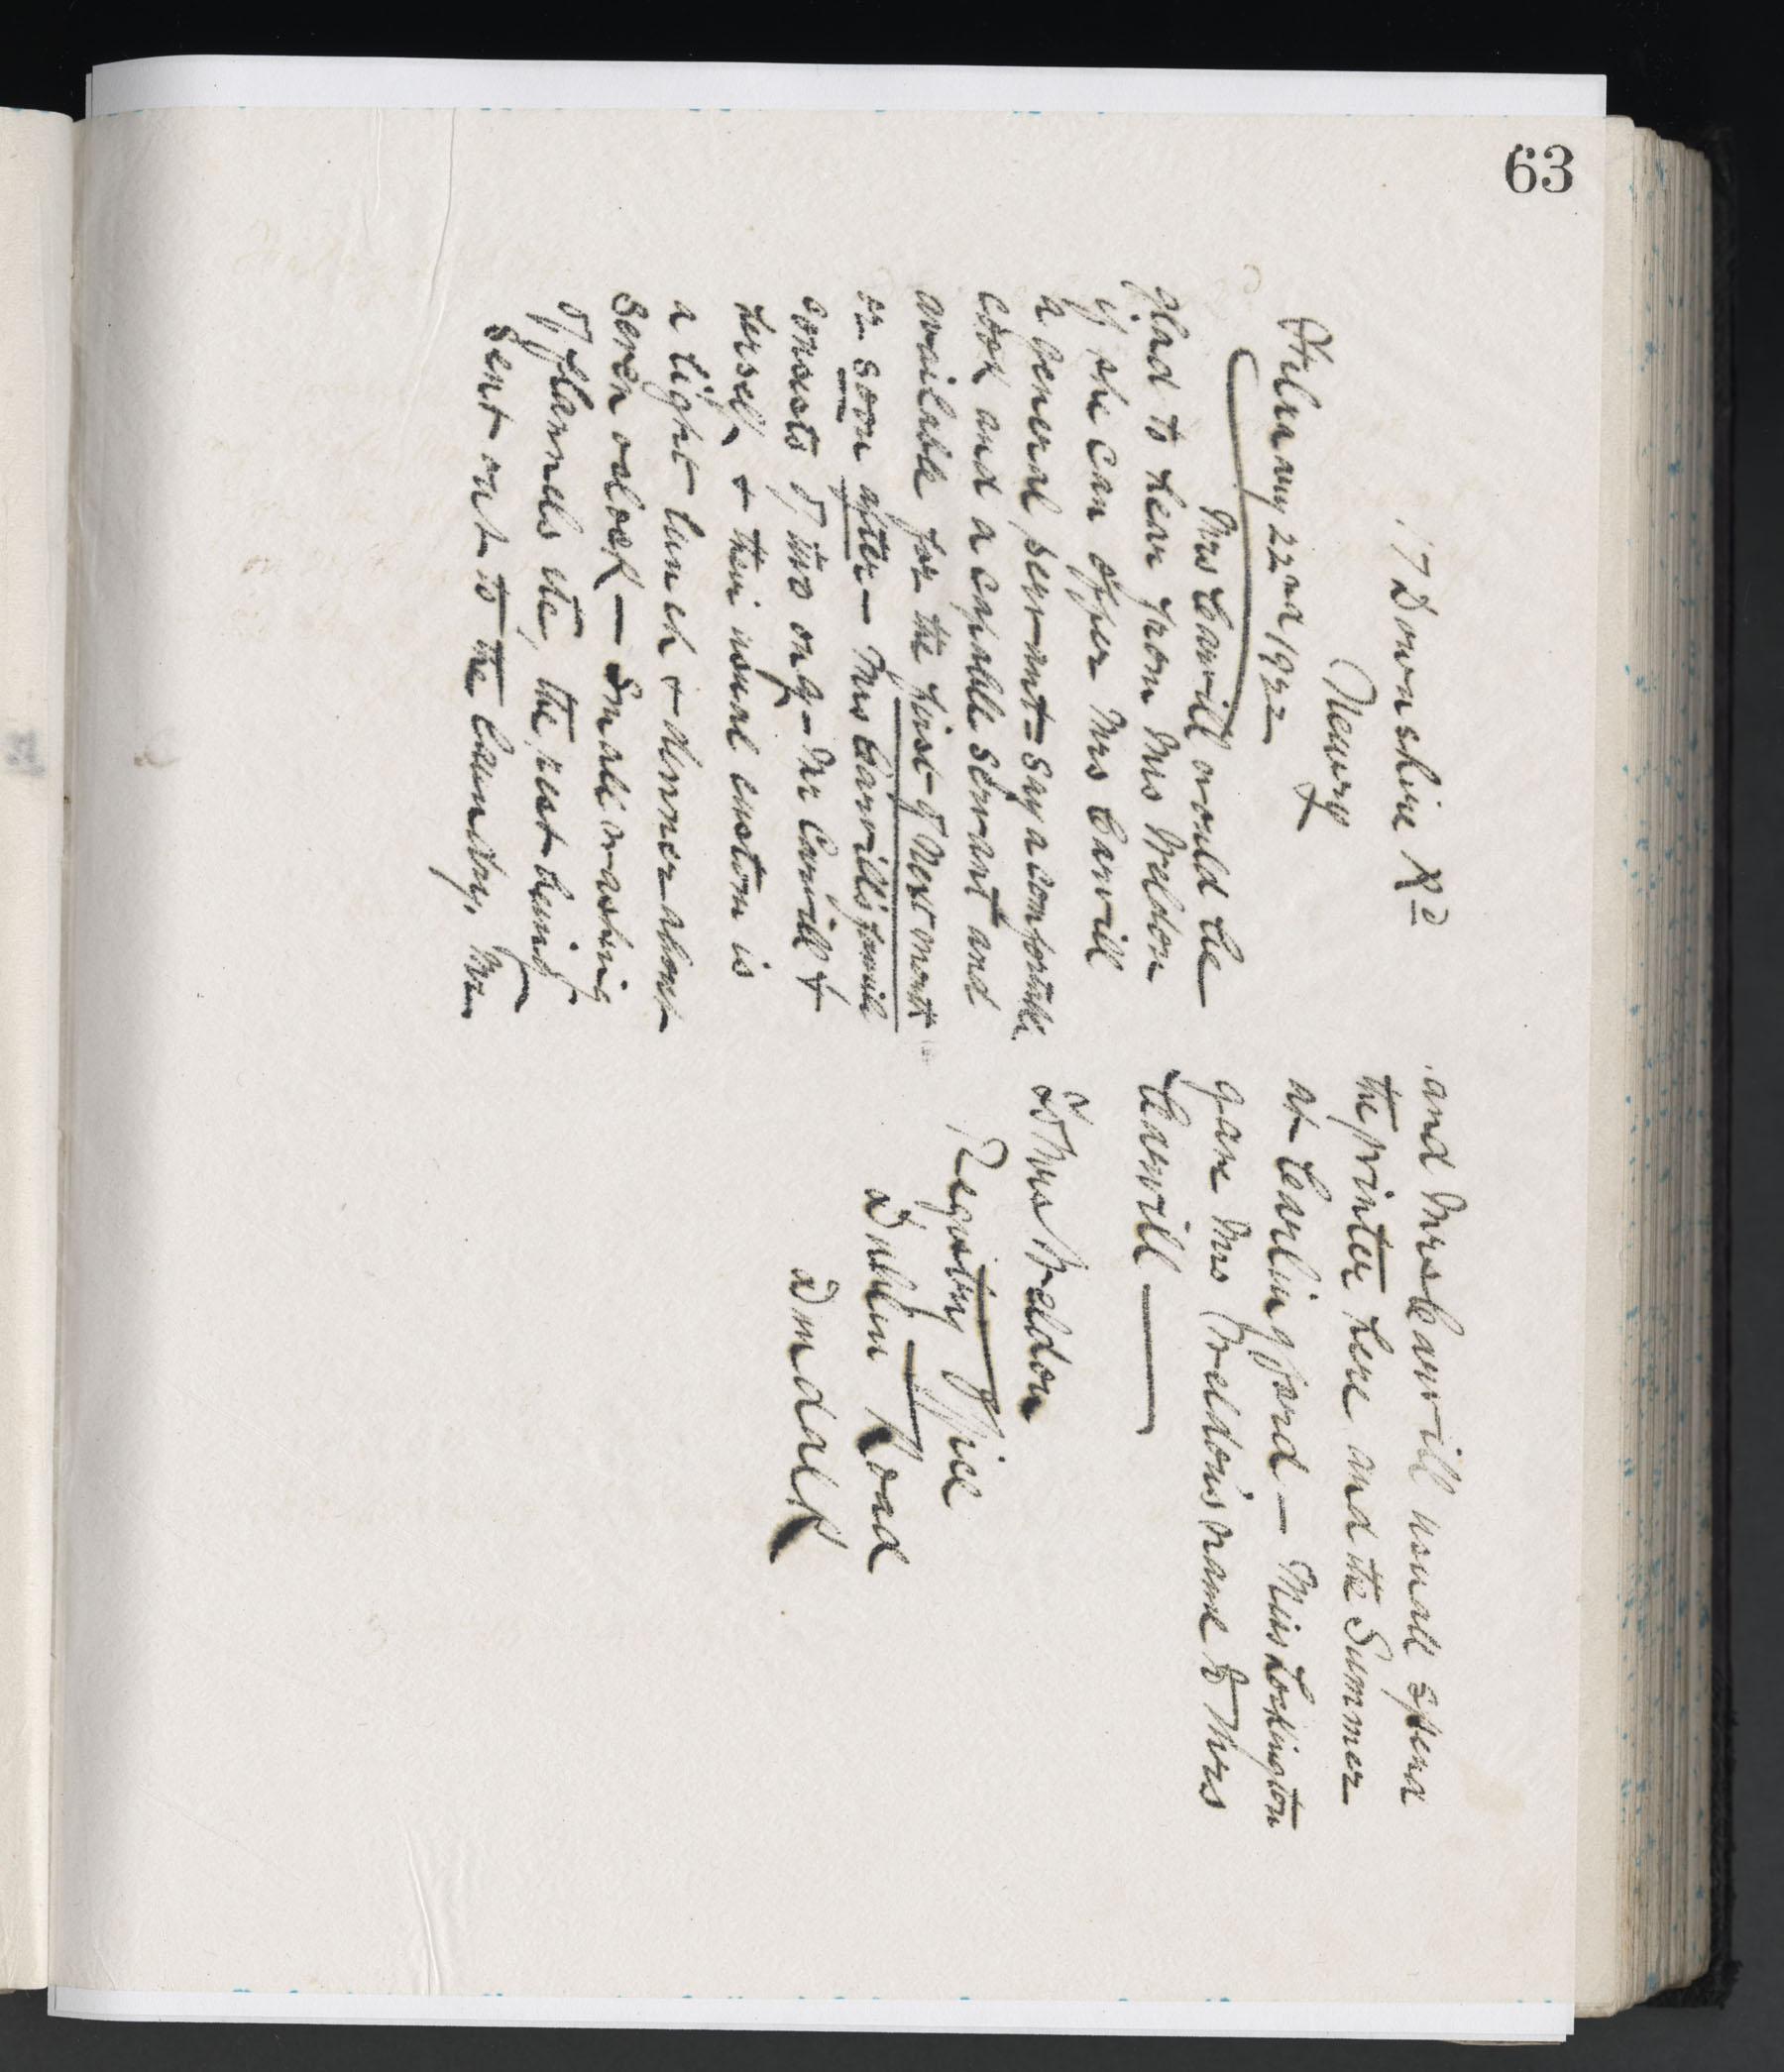 63
17 Downshire Rd
Newry
February 22nd 1922
Mrs Carvill would be
glad to hear from Mrs Weldon
if she can offer Mrs Carvill
a general servant - say a comfortable
cook and a capable servant and
available for the first of next month
or soon after - Mrs Carvill's famile
consists of two only - Mr Carvill &
herself & their usual custom is
a light lunch & dinner about
seven oclock - Small washing
of flannels etc, the rest being
sent out to the laundry, Mr
and Mrs Carvill usuall spend
the winter here and the Summer
at Carlingford - Miss Lockington
gave Mrs Weldon's name to Mrs
Carvill
To Mrs Weldon
Registry Office
Dublin Road
Dundalk